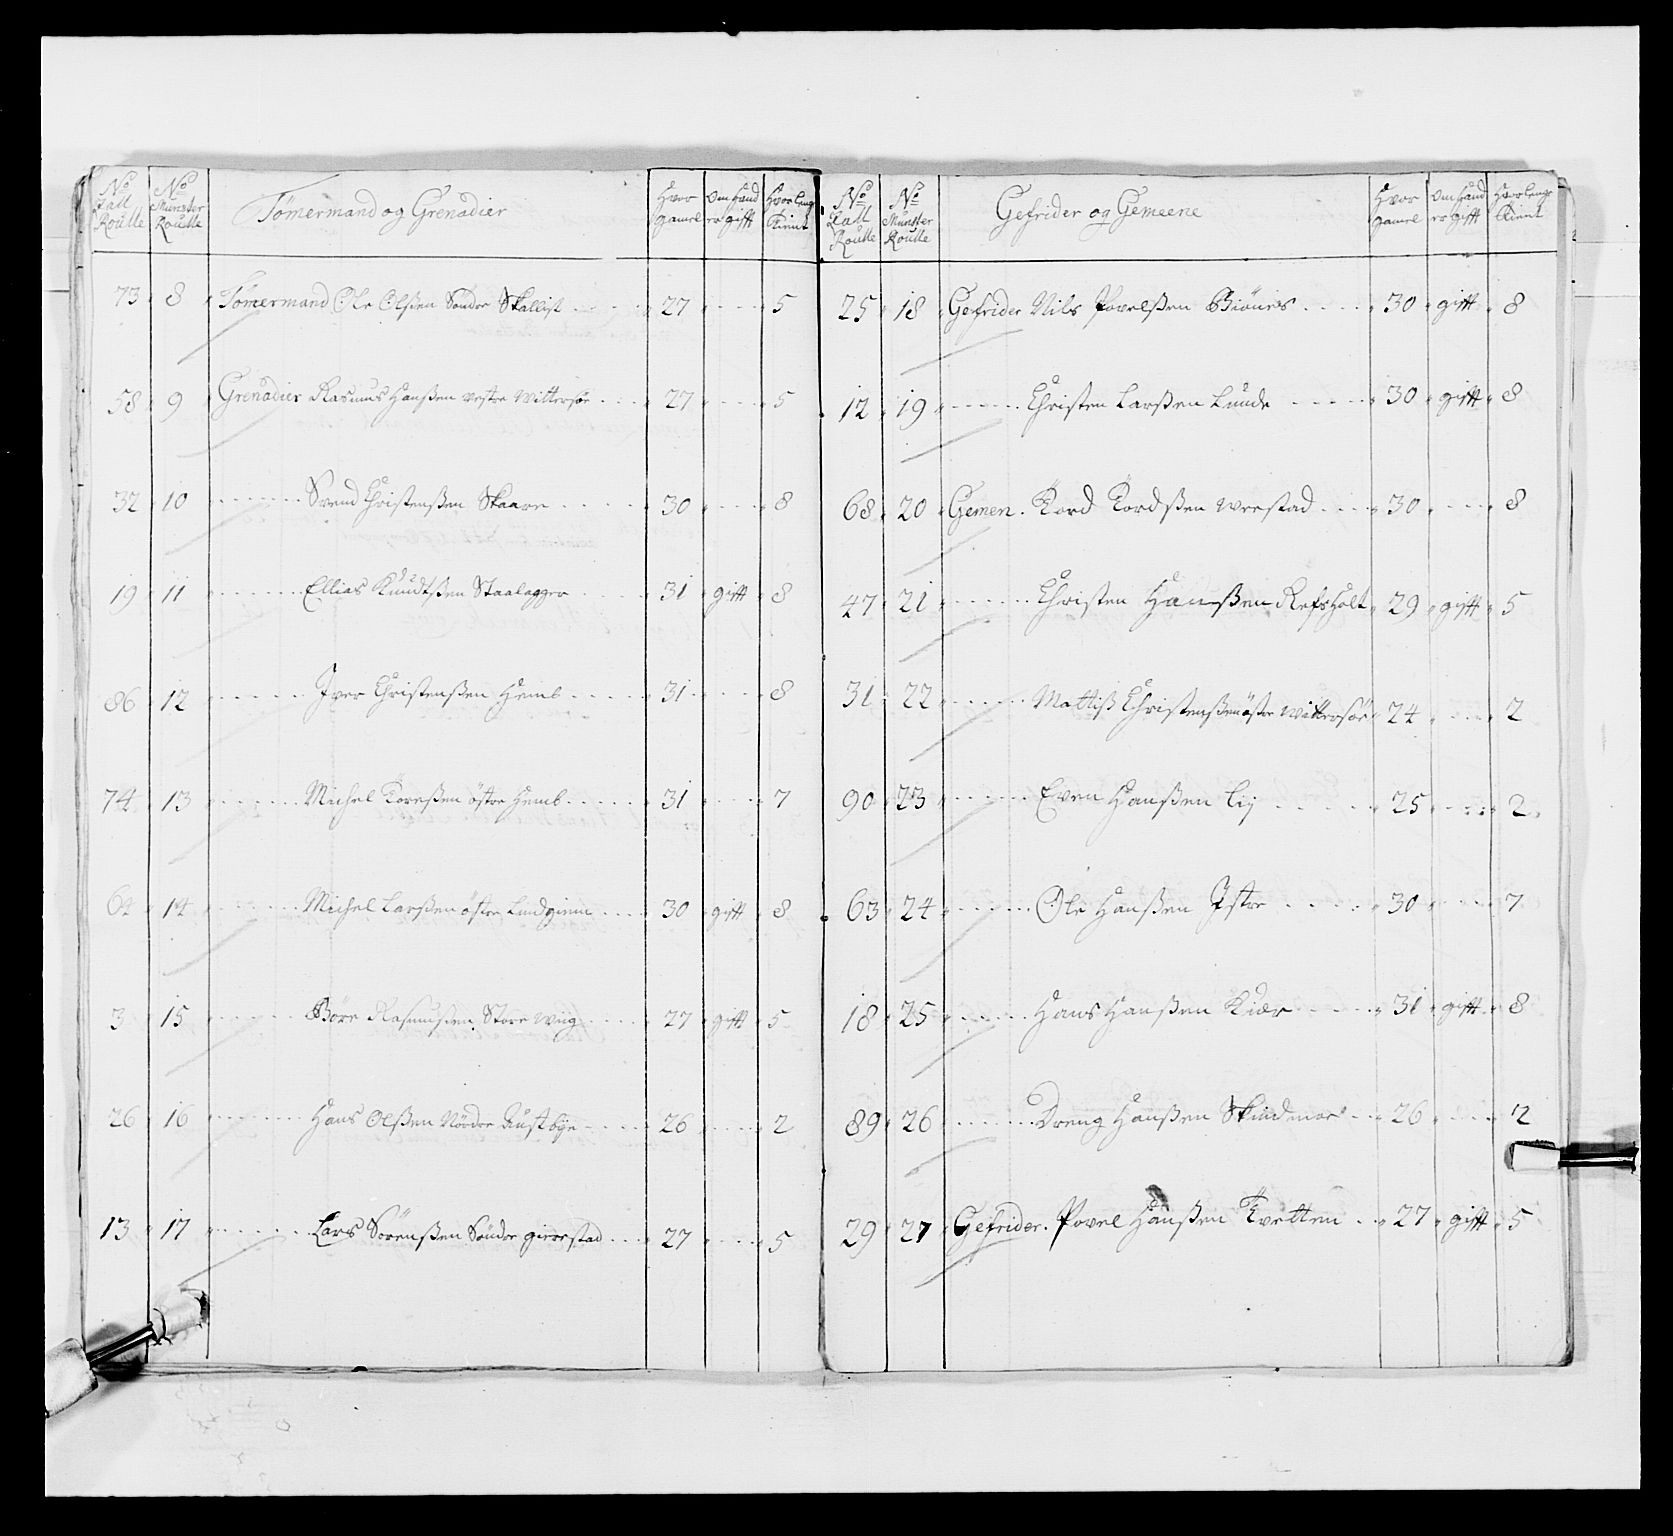 No Lall Roulle | No Mùnster Roulle | Tömermand og Grenadier | Hvor gamel | Om hand er gifft | Hvor leng tient
73 8 Tömermand Ole Olsßen Söndre Skallist 27 5
58 9 Grenadier Rasmus Hanßen vestre Wittersöe 27 5
32 10 Svend Christenßen Skaare 30 8
19 11 Ellias Knudtßen Staalagger 31 gifft 8
86 12 Iver Christenßen Hemb 31 8
74 13 Michel Toreßen östre Hemb 31 7
64 14 Michel Larßen östre Lindgiem 30 gifft 8
3 15 Börre Rasmußen Store Wiig 27 gifft 5
26 16 Hans Olßen Nördre Austbye 26 2
13 17 Lars Sörenßen Söndre gierestad 27 5
No Lall Roulle | No Mùnster Roulle | Gefrider og Gemeene | Hvor gamel | Om hand er gifft | Hvor lenge tient
25 18 Gefrider Nils Povelßen Biönes 30 gifft 8
12 19 Christen Larßen Lunde 30 gifft 8
68 20 Gemen. Tord Tordßen Werstad 30 8
47 21 Christen Hanßen Refsholt 29 gifft 5
31 22 Mattiß Christenßen östre Wittersöe 24 2
90 23 Even Hanßen Lij 25 2
63 24 Ole Hanßen Istre 30 7
18 25 Hans Hanßen Kiær 31 gifft 8
89 26 Dreng Hanßen Skindmoe 26 2
29 27 Gefrider. Povel Hanßen Tvetten 27 gifft 5